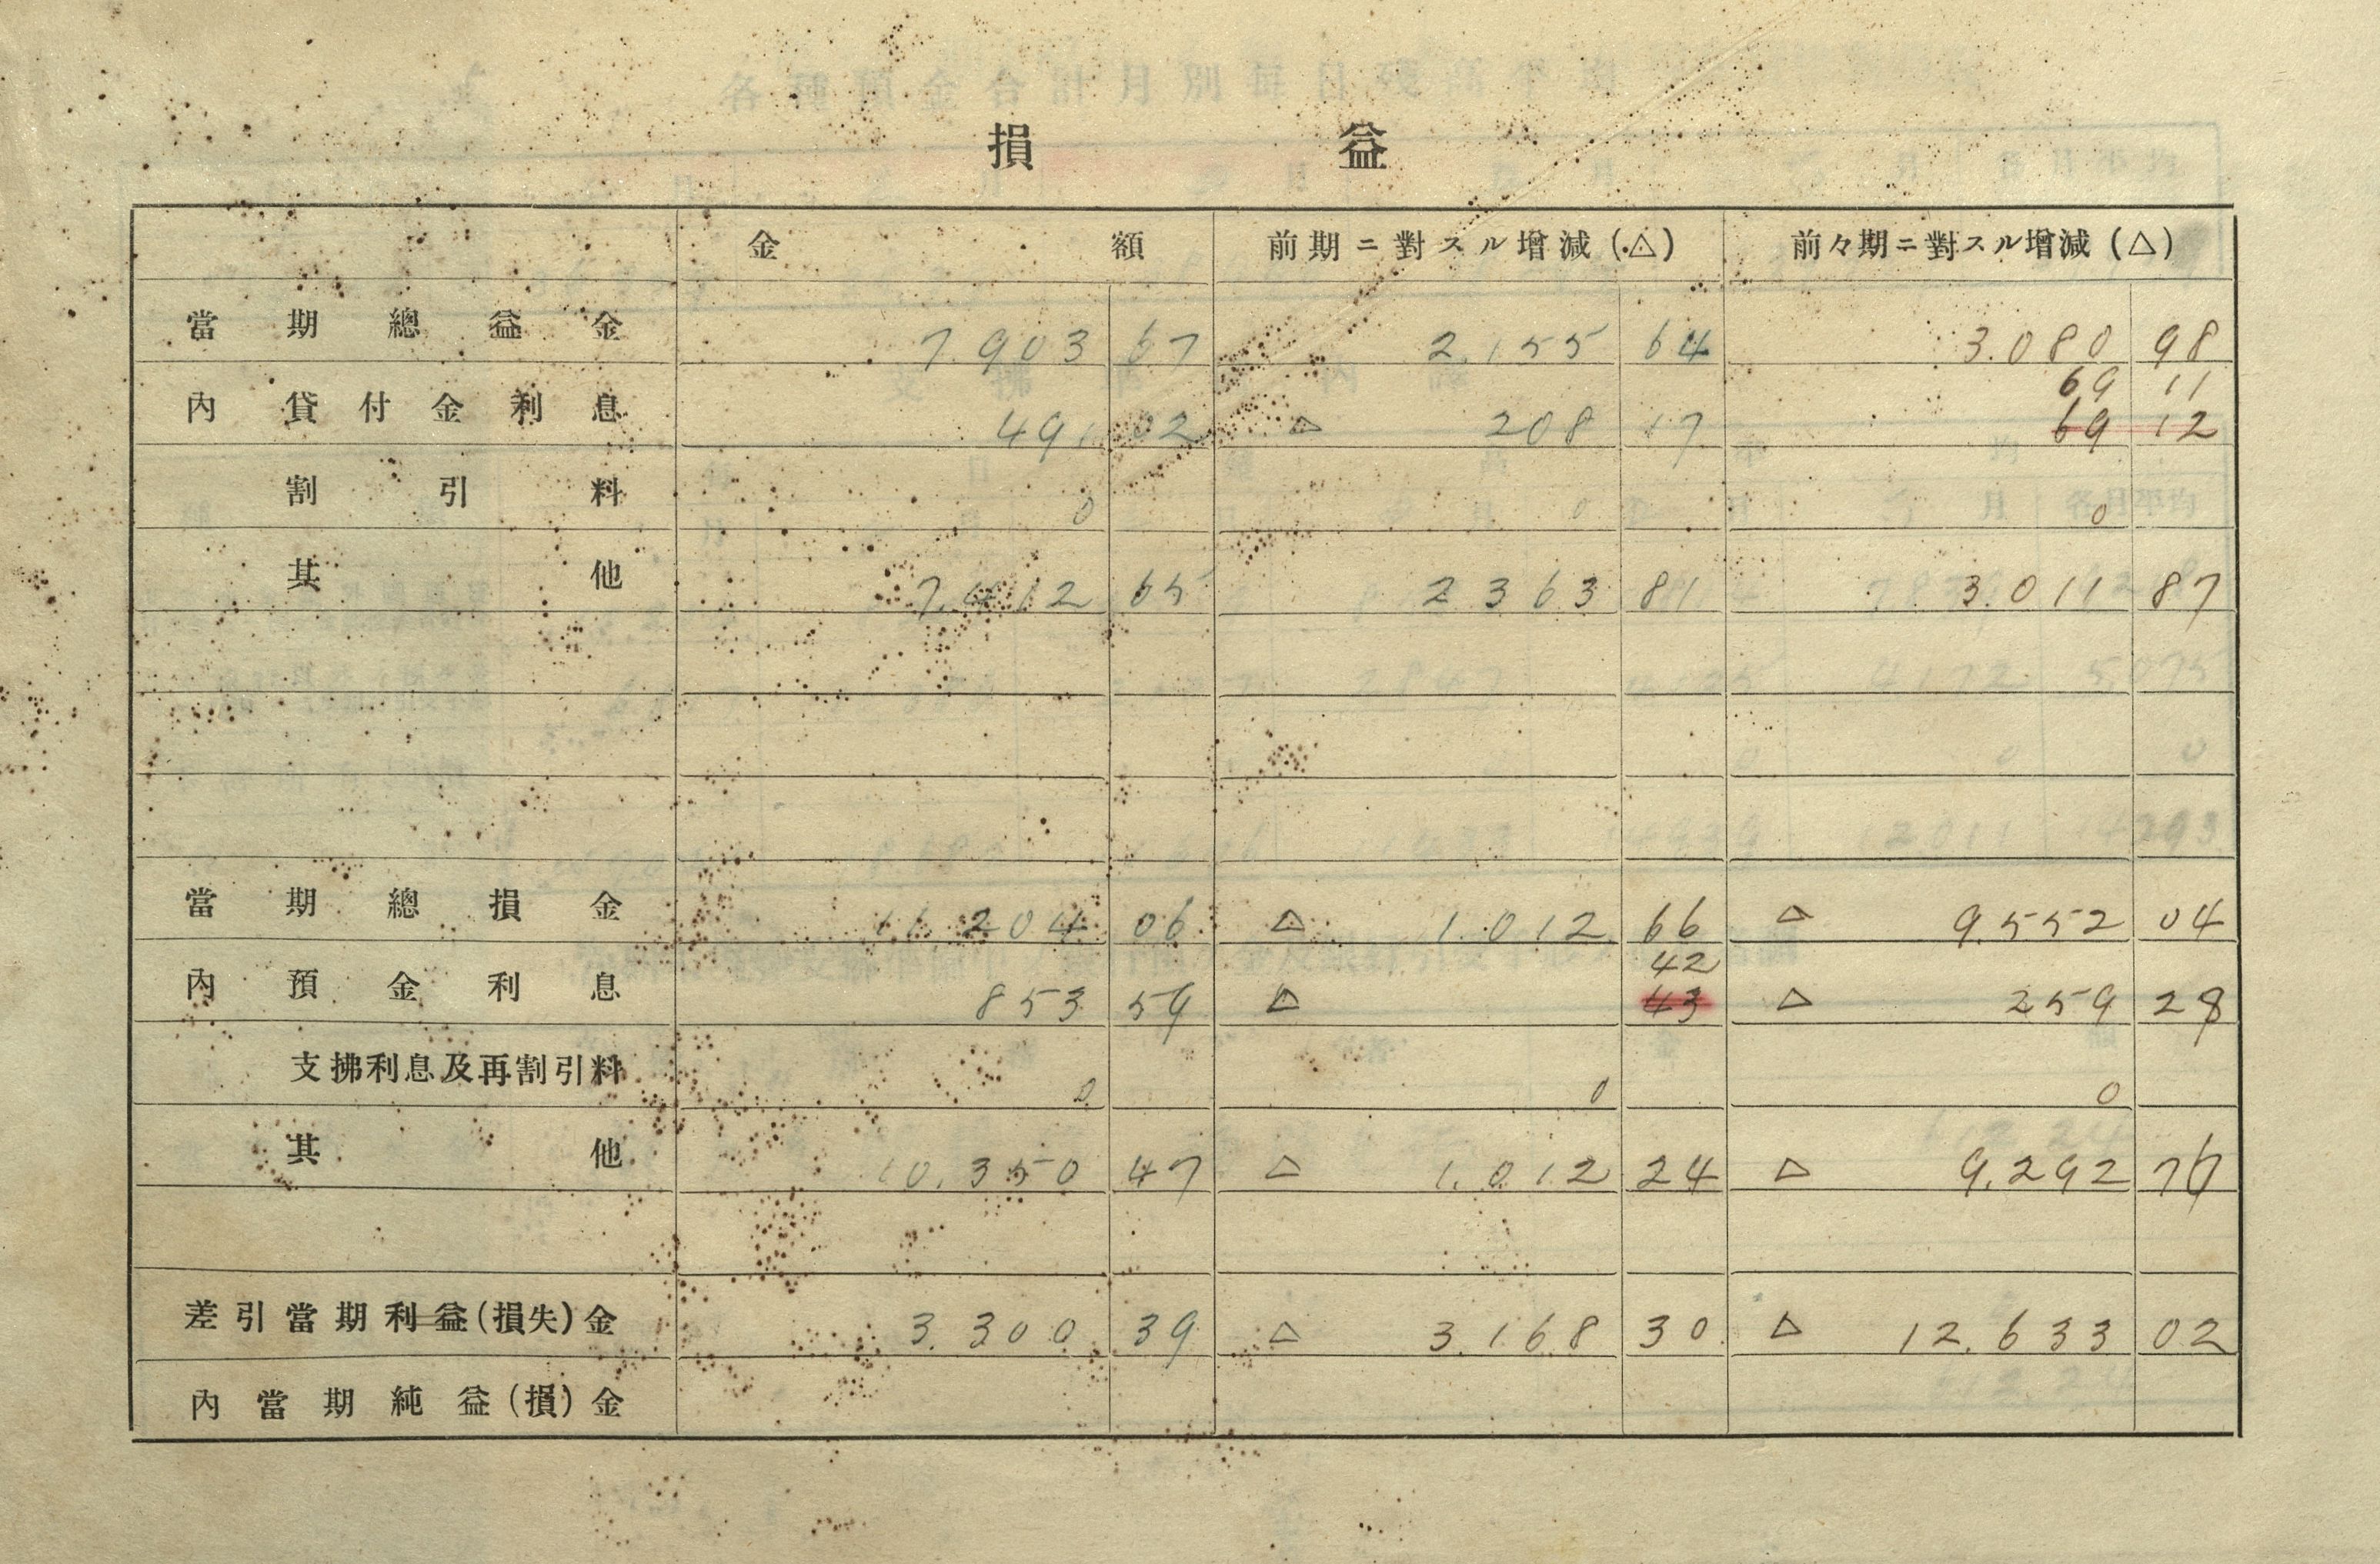 損益
金額 前期ニ對スル增減(△) 前々期ニ對スル增減(△)
當期總益金 7.903 67 2.155 64 3.080 98
69 11
內貸付金利息 491 02 △ 208 17 69 12
割引料 0 0 0
其他 7.412 65 2363 81 3.011 87
當期總損金 11.204 06 △ 1.012 66 △ 9.552 04
42
內預金利息 853 59 △ 43 △ 259 28
支拂利息及再割引料 0 0 0
其他 10.350 47 △ 1.012 24 △ 9.292 76
差引當期利益(損失)金 3.300 39 △ 3.168 30 △ 12.633 02
內當期純益(損)金